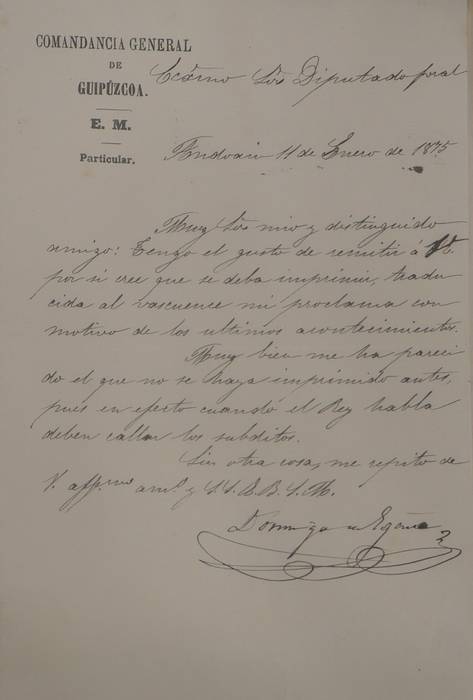 COMANDANCIA GENERAL
DE
GUIPÚZCOA.
E. M.
Particular.
Ecsmo Sõr Diputado foral
Andoain 11 de Enero de 1875
Muy Sõr mio y distinguido
amigo: Tengo el gusto de remitir á V.
por si cree que se deba imprimir, tradu
cida al vascuence mi proclama con
motivo de los ultimos acontecimientos.
Muy bien me ha pareci
do el que no se haya imprimido antes,
pues en efecto cuando el Rey habla
deben callar los subditos.
Sin otra cosa, me repito de
V. affmo amº y S. S. Q. B. S. M.
Domingo de Egaña